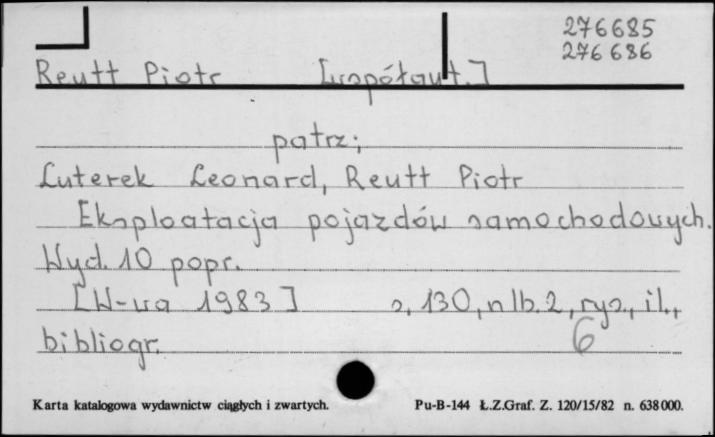 276685
276686
Reutt Piotr [współaut.]
patrz;
Luterek Leonard, Reutt Piotr
Eksploatacja pojazdów samochodowych.
Wyd. 10 popr.
[W-wa 1983] s. 130, nlb. 2, rys., il.,
bibliogr.
6
Karta katalogowa wydawnictw ciągłych i zwartych. Pu-B-144 Ł.Z.Graf. Z. 120/15/82 n. 638000.